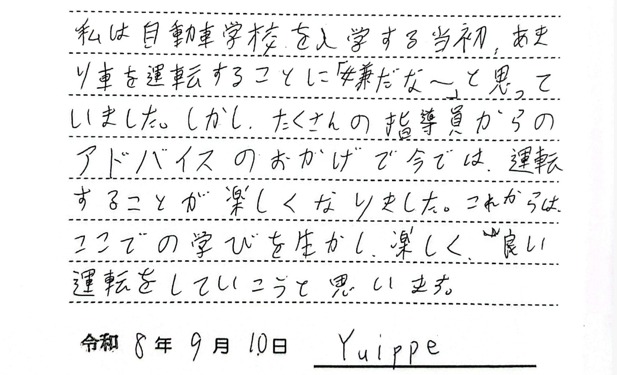 私は自動車学校を入学する当初、あま
り車を運転することに「嫌だな〜」と思って
いました。しかし、たくさんの指導員からの
アドバイスのおかげで今では、運転
することが楽しくなりました。これからは
ここでの学びを生かし、楽しく、良い
運転をしていこうと思います。
令和8年9月10日 Yuippe